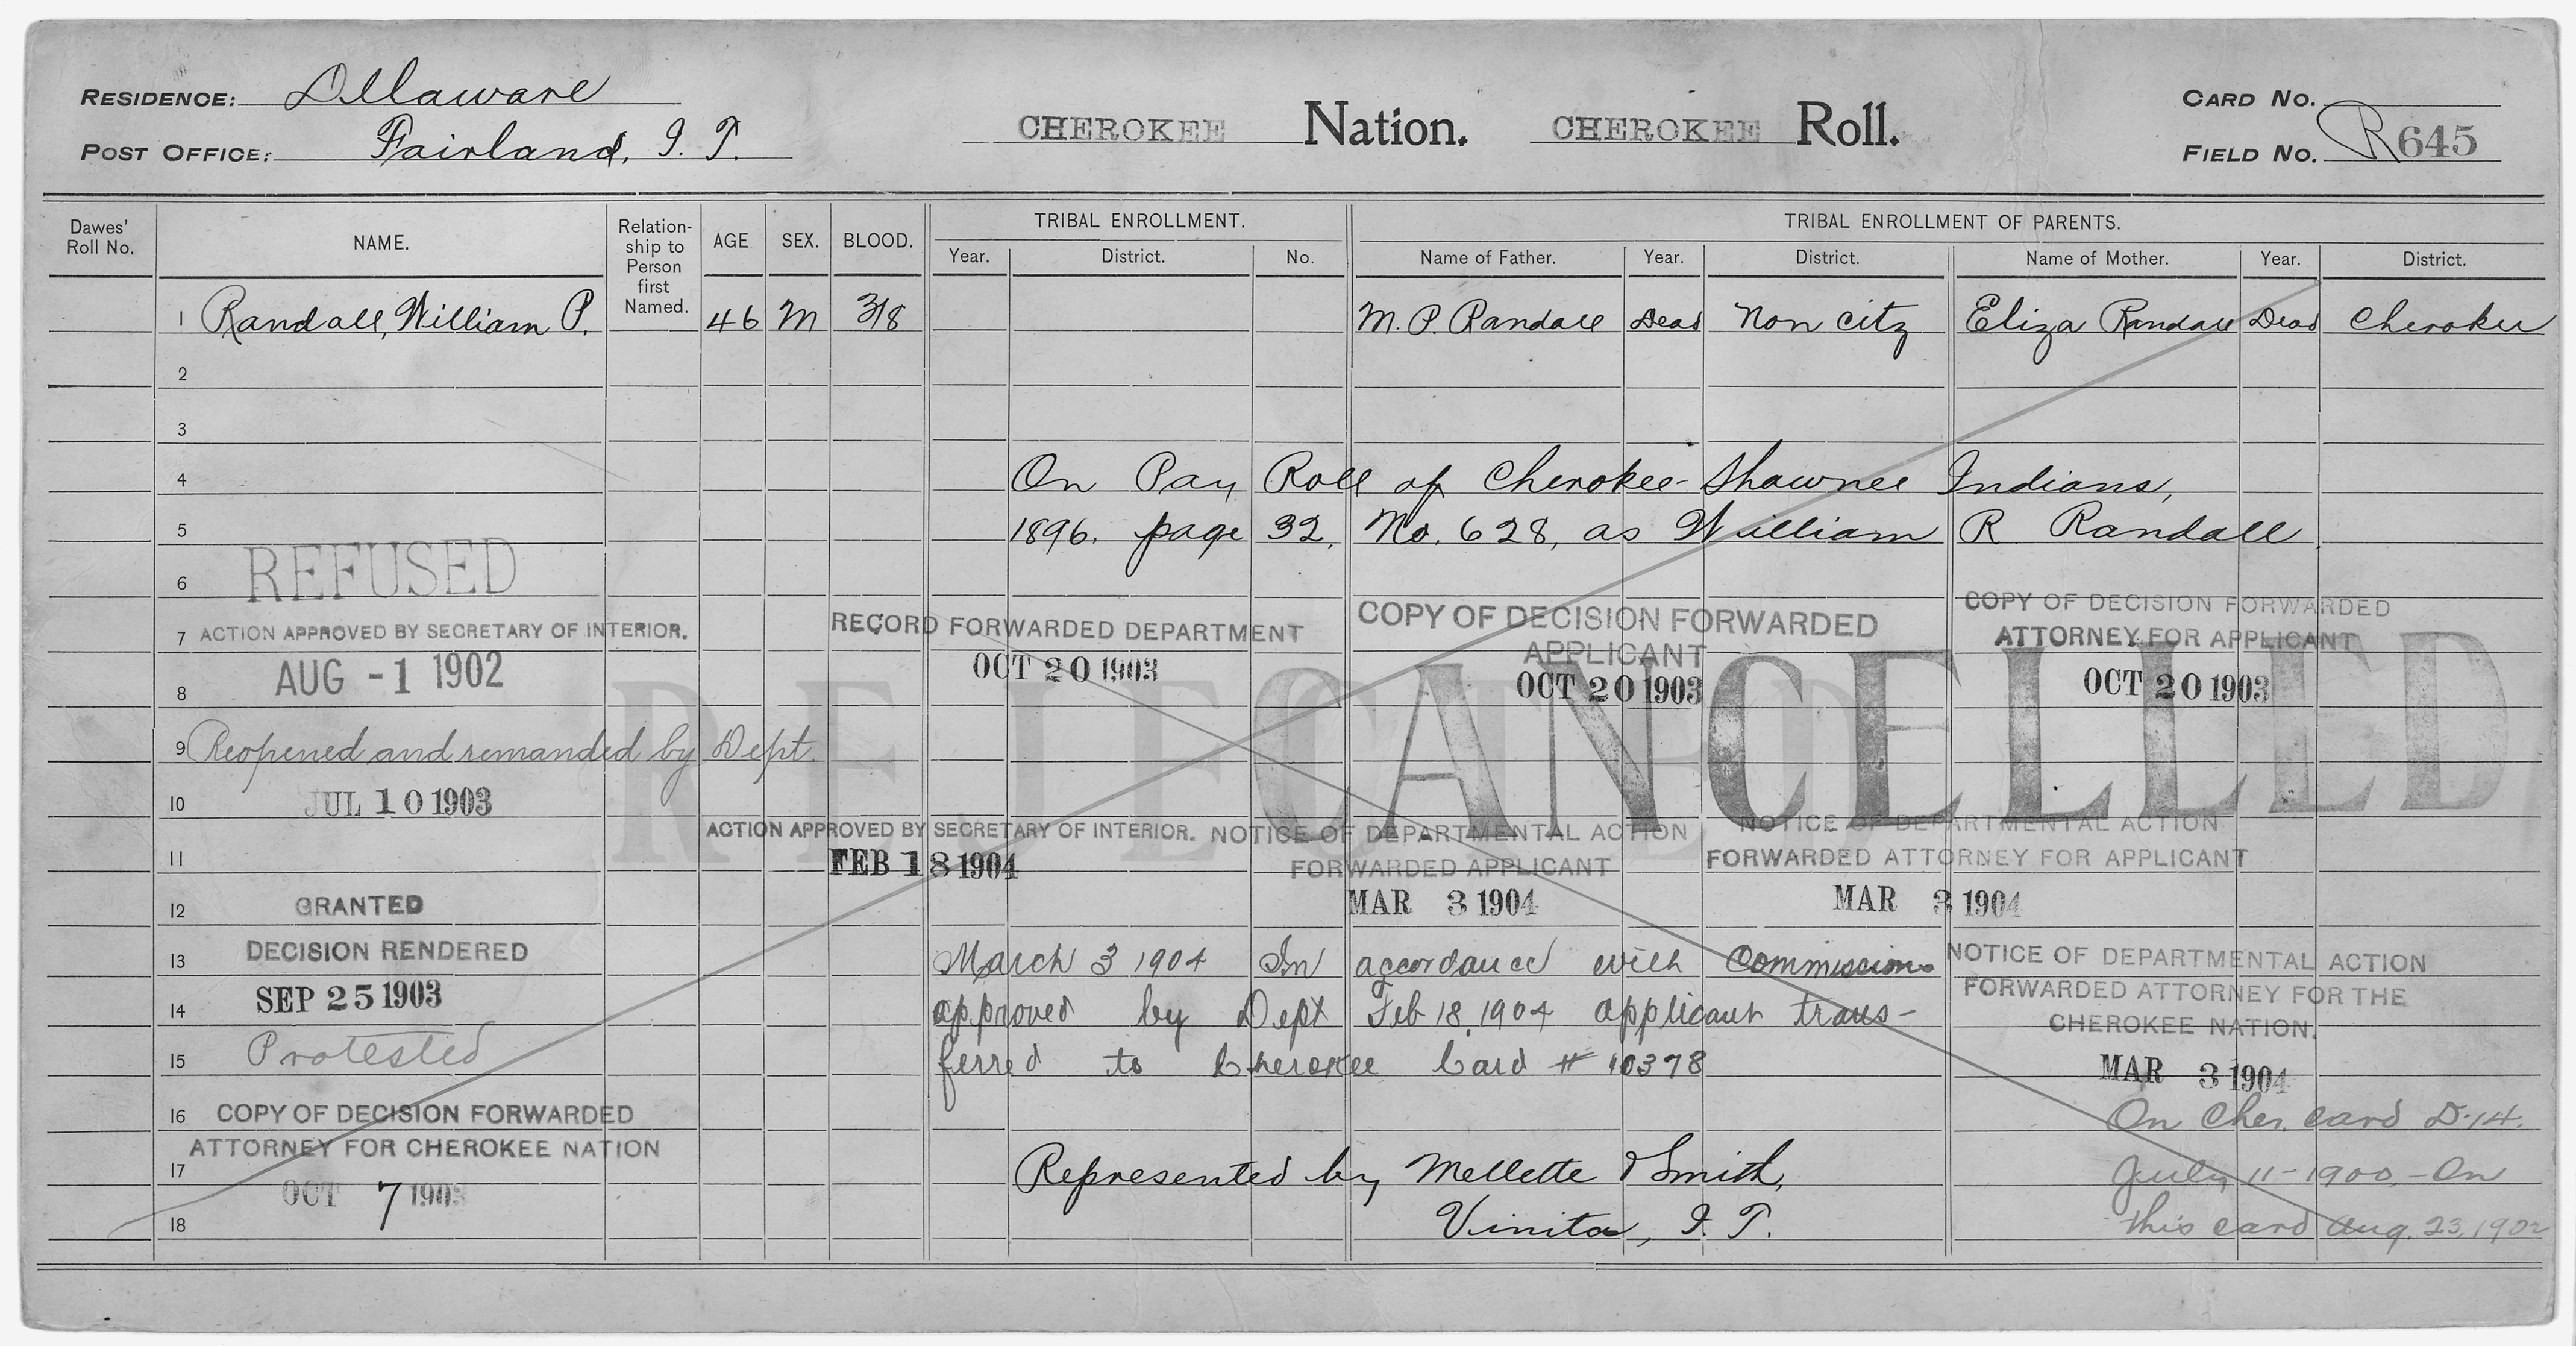 RESIDENCE: Dellaware
POST OFFICE: Fairland, I. T.
CHEROKEE Nation. CHEROKEE Roll.
CARD NO.
FIELD NO. R645
Dawes' Roll No.
NAME.
Relation-ship to Person first Named.
AGE
SEX.
BLOOD.
TRIBAL ENROLLMENT.
Year. District. No.
TRIBAL ENROLLMENT OF PARENTS.
Name of Father. Year. District. Name of Mother. Year. District.
1 Randall, William P. 46 M 3/8 M. P. Randall Dead Non citz Eliza Randall Dead Cherokee
2
3
4 On Pay Roll of Cherokee-Shawnee Indians,
5 1896. page 32, No. 628, as William R Randall
REFUSED
6
7 ACTION APPROVED BY SECRETARY OF INTERIOR.
8 AUG -1 1902
RECORD FORWARDED DEPARTMENT
OCT 20 1903
COPY OF DECISION FORWARDED
APPLICANT
OCT 20 1903
COPY OF DECISION FORWARDED
ATTORNEY FOR APPLICANT
OCT 20 1903
REJECTED
CANCELLED
9 Reopened and remanded by Dept.
10 JUL 10 1903
11
ACTION APPROVED BY SECRETARY OF INTERIOR.
FEB 18 1904
NOTICE OF DEPARTMENTAL ACTION
FORWARDED APPLICANT
MAR 3 1904
NOTICE OF DEPARTMENTAL ACTION
FORWARDED ATTORNEY FOR APPLICANT
MAR 3 1904
12 GRANTED
13 DECISION RENDERED
14 SEP 25 1903
15 Protested
March 3 1904 In accordance with Commissions
approved by Dept Feb 18, 1904 applicant trans-
ferred to Cherokee Card # 10378
NOTICE OF DEPARTMENTAL ACTION
FORWARDED ATTORNEY FOR THE
CHEROKEE NATION.
MAR 3 1904
16 COPY OF DECISION FORWARDED
ATTORNEY FOR CHEROKEE NATION
17
OCT 7 1903
18
Represented by Mellette & Smith,
Vinita, I. T.
On Cher. card D-14.
July 11-1900,-On
this card Aug. 23, 1902